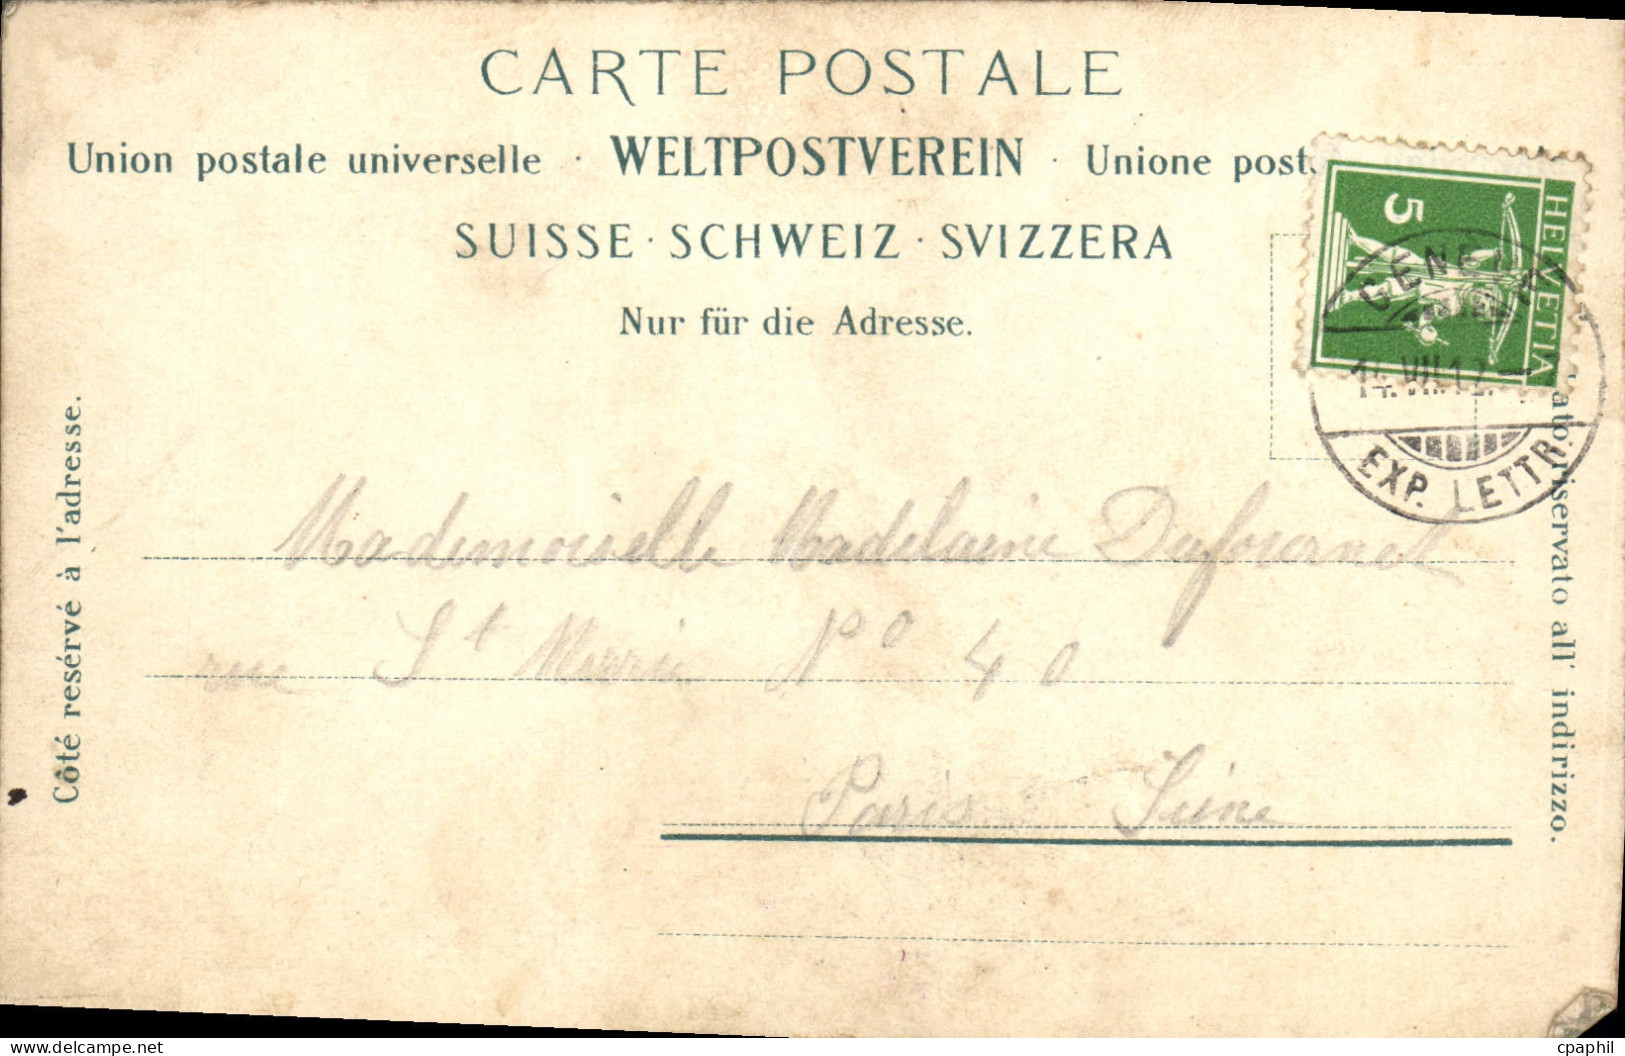 CARTE POSTALE
Union postale universelle · WELTPOSTVEREIN · Unione post
SUISSE · SCHWEIZ · SVIZZERA
Nur für die Adresse.
Côté resérvé à l'adresse.
lato riservato all' indirizzo.
HELVETIA
5
GENEVE
14.VII.12.
EXP. LETTR.
Mademoiselle Madelaine Dufournet
rue St Merri No 40
Paris Seine
cpaphil